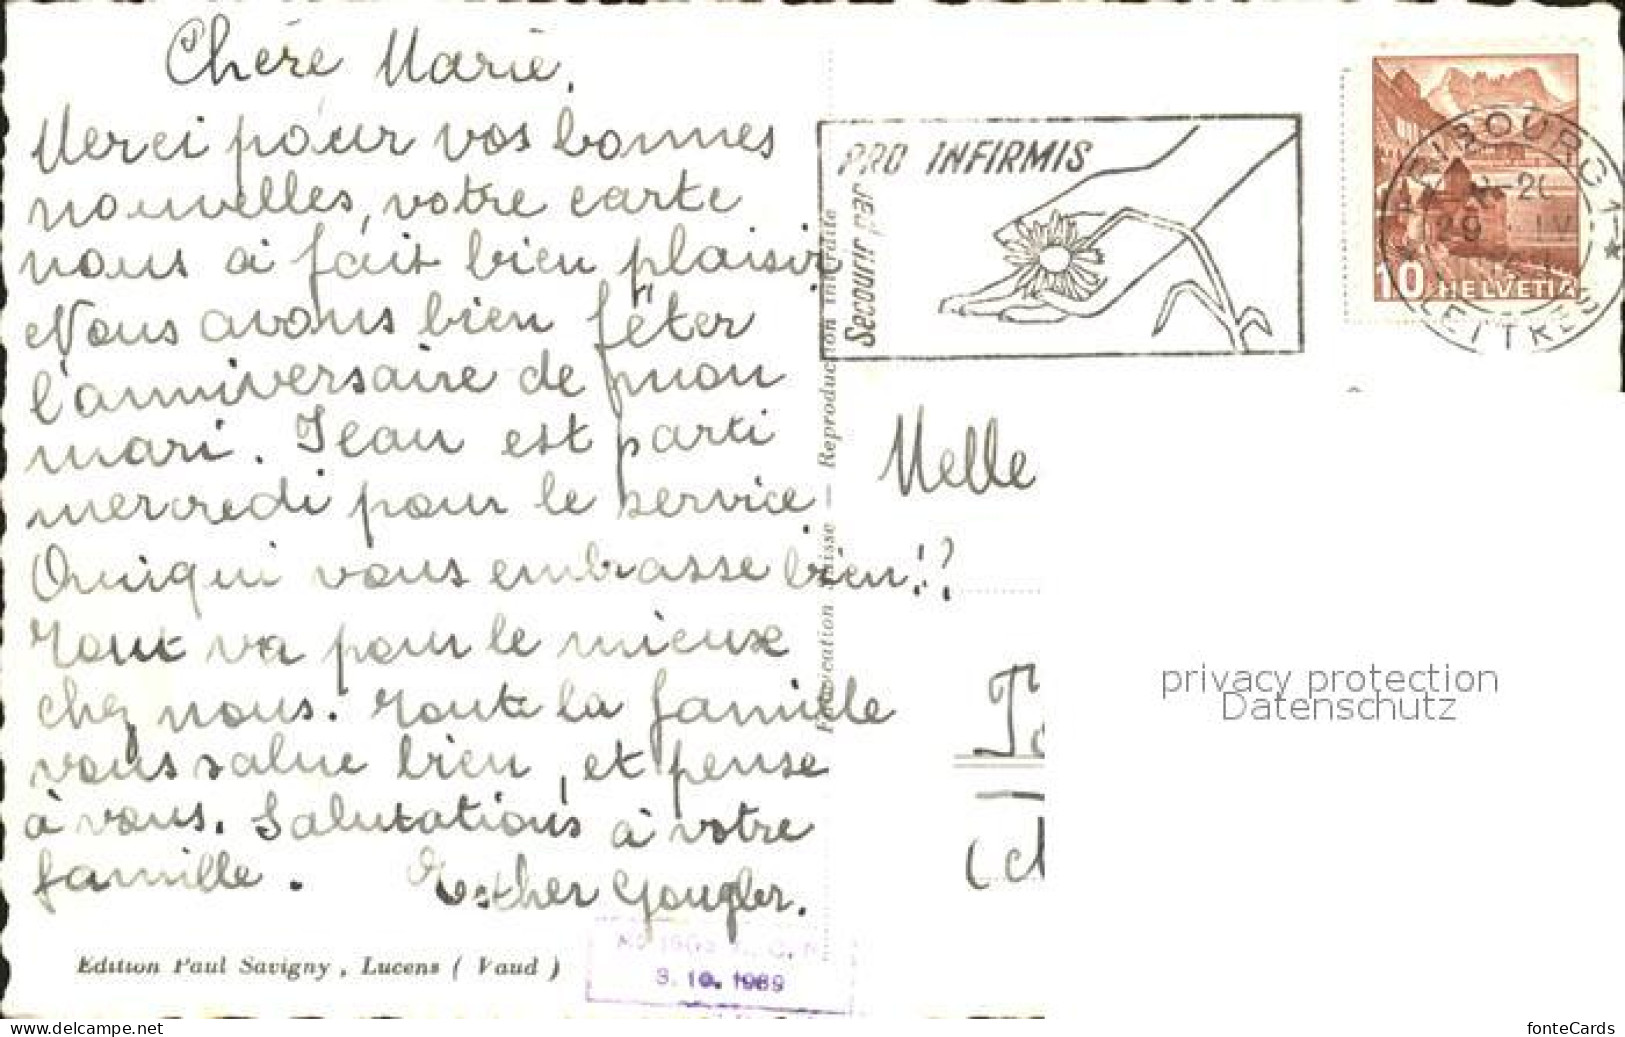 Chère Marie,
Merci pour vos bonnes
nouvelles, votre carte
nous a fait bien plaisir
Nous avons bien fêter
l'anniversaire de mon
mari. Jean est parti
mercredi pour le service
Quiqui vous embrasse bien!?
Tout va pour le mieux
chez nous. Toute la famille
vous salue bien, et pense
à vous. Salutations à votre
famille. Esther Gougler.
Edition Paul Savigny, Lucens ( Vaud )
3. 10. 1989
Fabrication Suisse — Reproduction interdite
PRO INFIRMIS
Secourir par
FRIBOURG 1
LETTRES
29 IV
10 HELVETIA
Melle
privacy protection
Datenschutz
www.delcampe.net
fonteCards